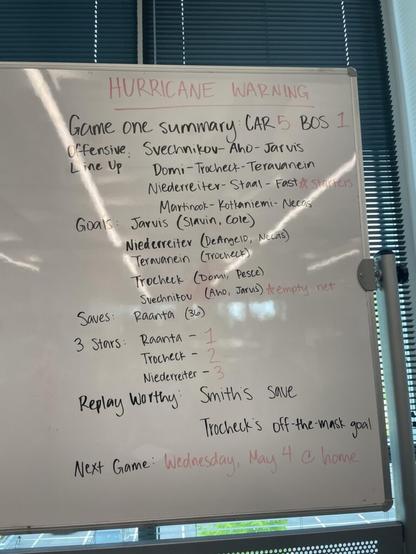 HURRICANE WARNING
Game one summary: CAR 5 BOS 1
Offensive Line Up: Svechnikov-Aho-Jarvis
Domi-Trocheck-Teravainen
Niederreiter-Staal-Fast ☆ starters
Martinook-Kotkaniemi-Necas
Goals: Jarvis (Slavin, Cole)
Niederreiter (DeAngelo, Necas)
Teravainen (Trocheck)
Trocheck (Domi, Pesce)
Svechnikov (Aho, Jarvis) ☆ empty net
Saves: Raanta (36)
3 Stars: Raanta - 1
Trocheck - 2
Niederreiter - 3
Replay Worthy: Smith's save
Trocheck's off-the-mask goal
Next Game: Wednesday, May 4 @ home